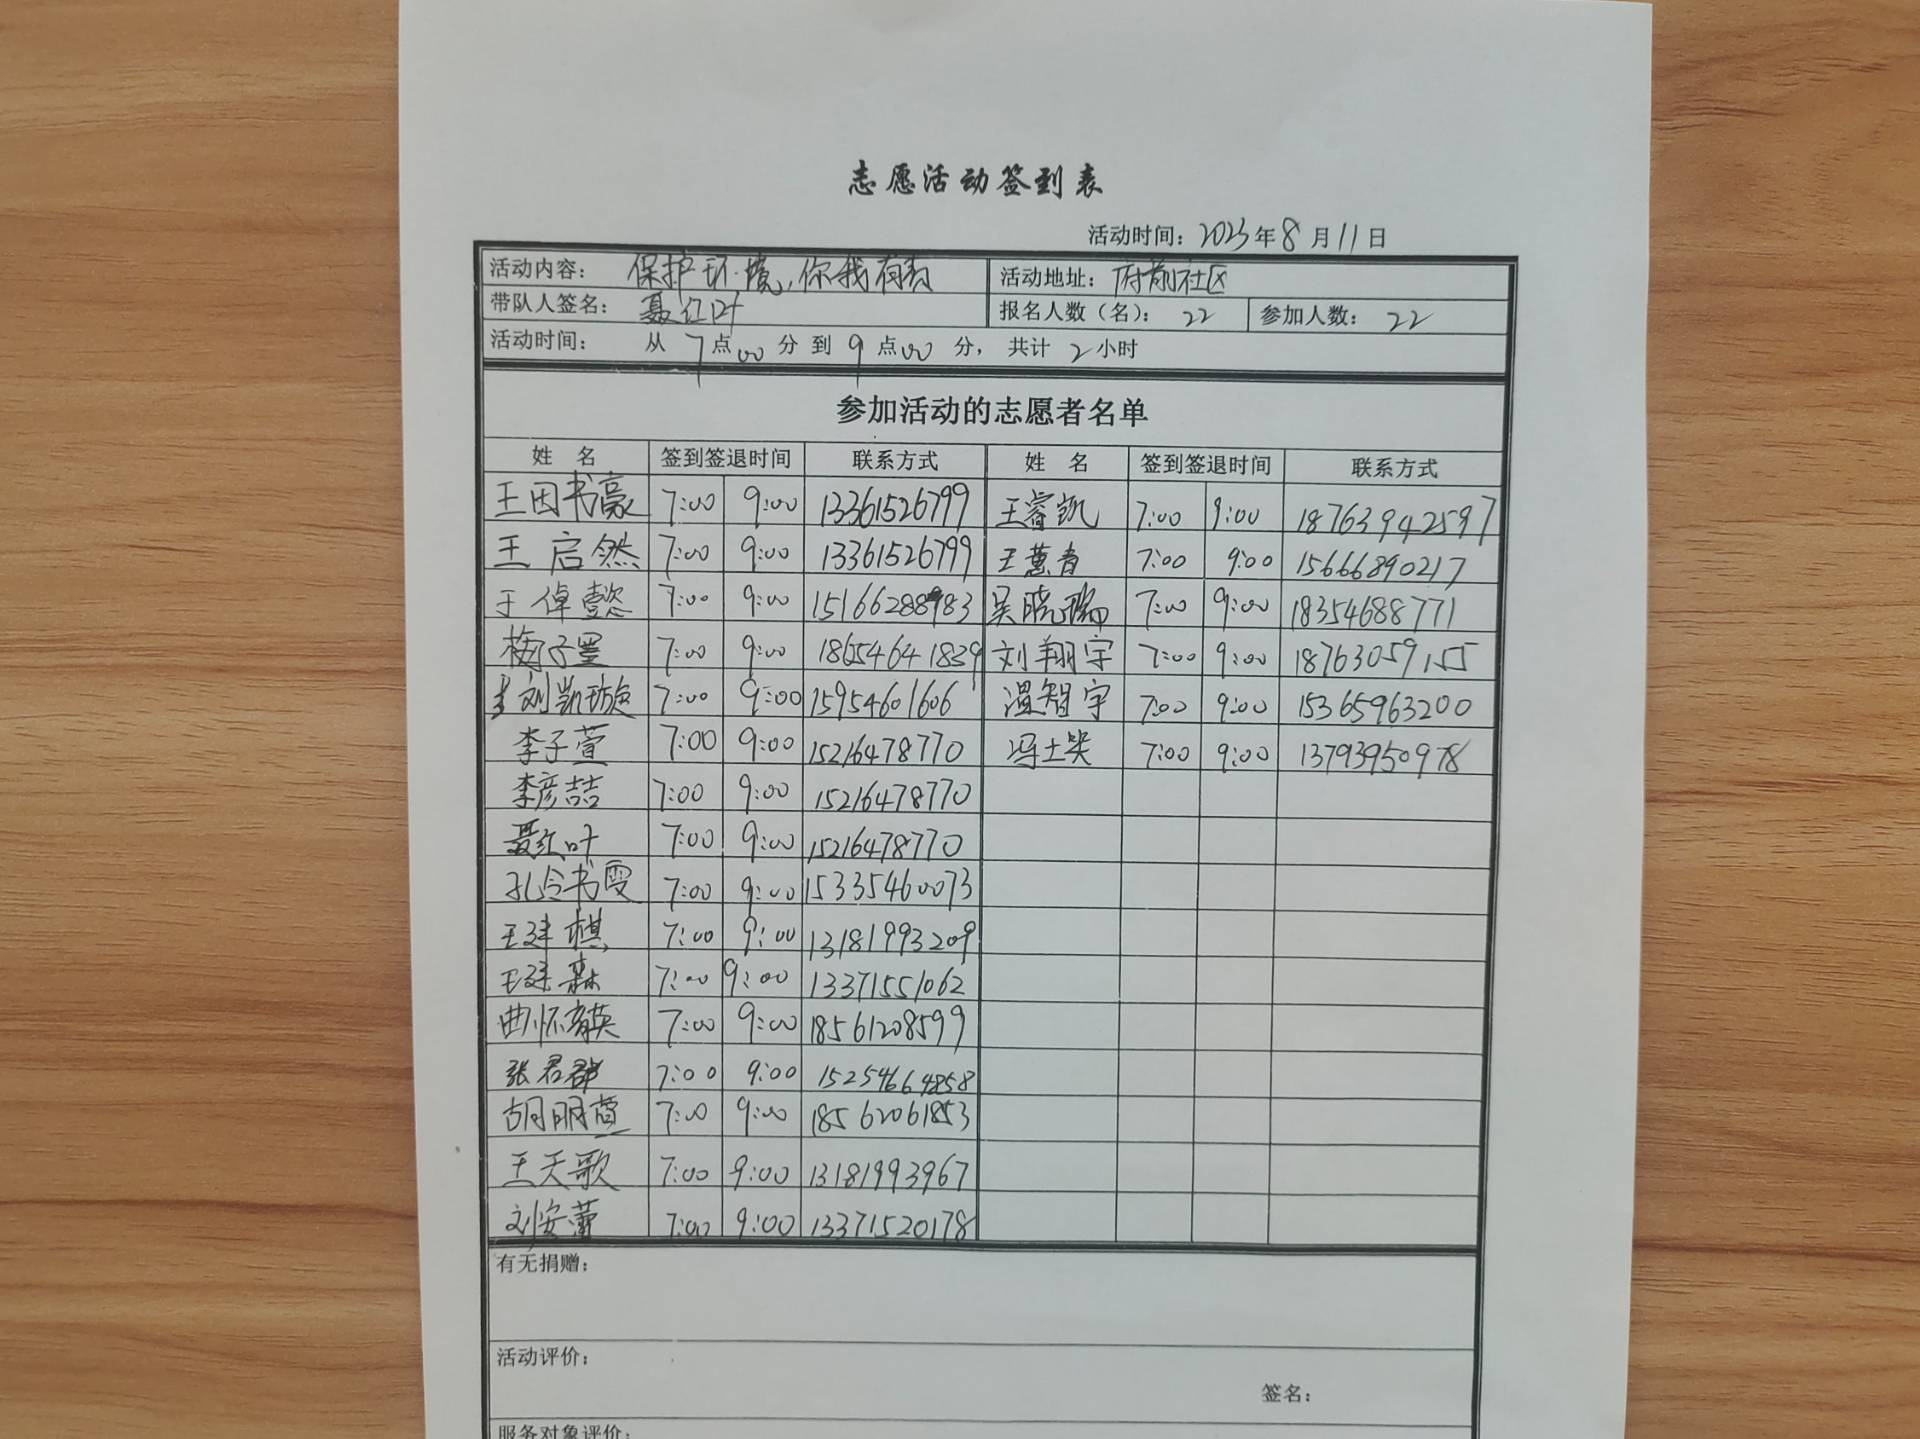 志愿活动签到表
活动时间：2023年8月11日
活动内容： 保护环境，你我有责 活动地址：府前社区
带队人签名： 聂红叶 报名人数（名）： 22 参加人数： 22
活动时间： 从 7点00分 到 9点00分， 共计 2小时
参加活动的志愿者名单
姓 名 签到签退时间 联系方式 姓 名 签到签退时间 联系方式
王因书豪 7:00 9:00 13361526799 王睿凯 7:00 9:00 18763942597
王启然 7:00 9:00 13361526799 王蕙青 7:00 9:00 15666890217
于倬懿 7:00 9:00 15166288983 吴晓瑞 7:00 9:00 18354688771
梅子墨 7:00 9:00 18654641839 刘翔宇 7:00 9:00 18763059155
刘凯璇 7:00 9:00 15954601606 温智宇 7:00 9:00 15365963200
李子萱 7:00 9:00 15216478770 7:00 9:00 13793950978
李彦喆 7:00 9:00 15216478770
聂红叶 7:00 9:00 15216478770
孔令书雯 7:00 9:00 15335460073
王建棋 7:00 9:00 13181993209
王建森 7:00 9:00 13371551062
曲怀英 7:00 9:00 18561208599
张君群 7:00 9:00 15254664858
胡明萱 7:00 9:00 18562061853
王天歌 7:00 9:00 13181993967
刘安蕾 7:00 9:00 13371520178
有无捐赠：
活动评价：
签名：
服务对象评价：